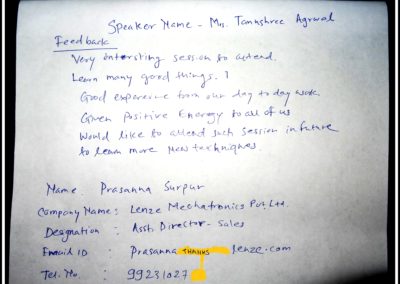 Speaker Name - Mrs. Tannshree Agrwal
Feedback
Very intersting session to attend.
Learn many good things. 1
Good experience from our day to day work
Given Positive Energy to all of us
Would like to attend such session in future
to learn more new techniques.
Name : Prasanna Surpur
Company Name : Lenze Mechatronics Pvt. Ltd.
Designation : Asst. Director - Sales
Email ID : Prasanna THANKS lenze.com
Tel. No. : 99231027